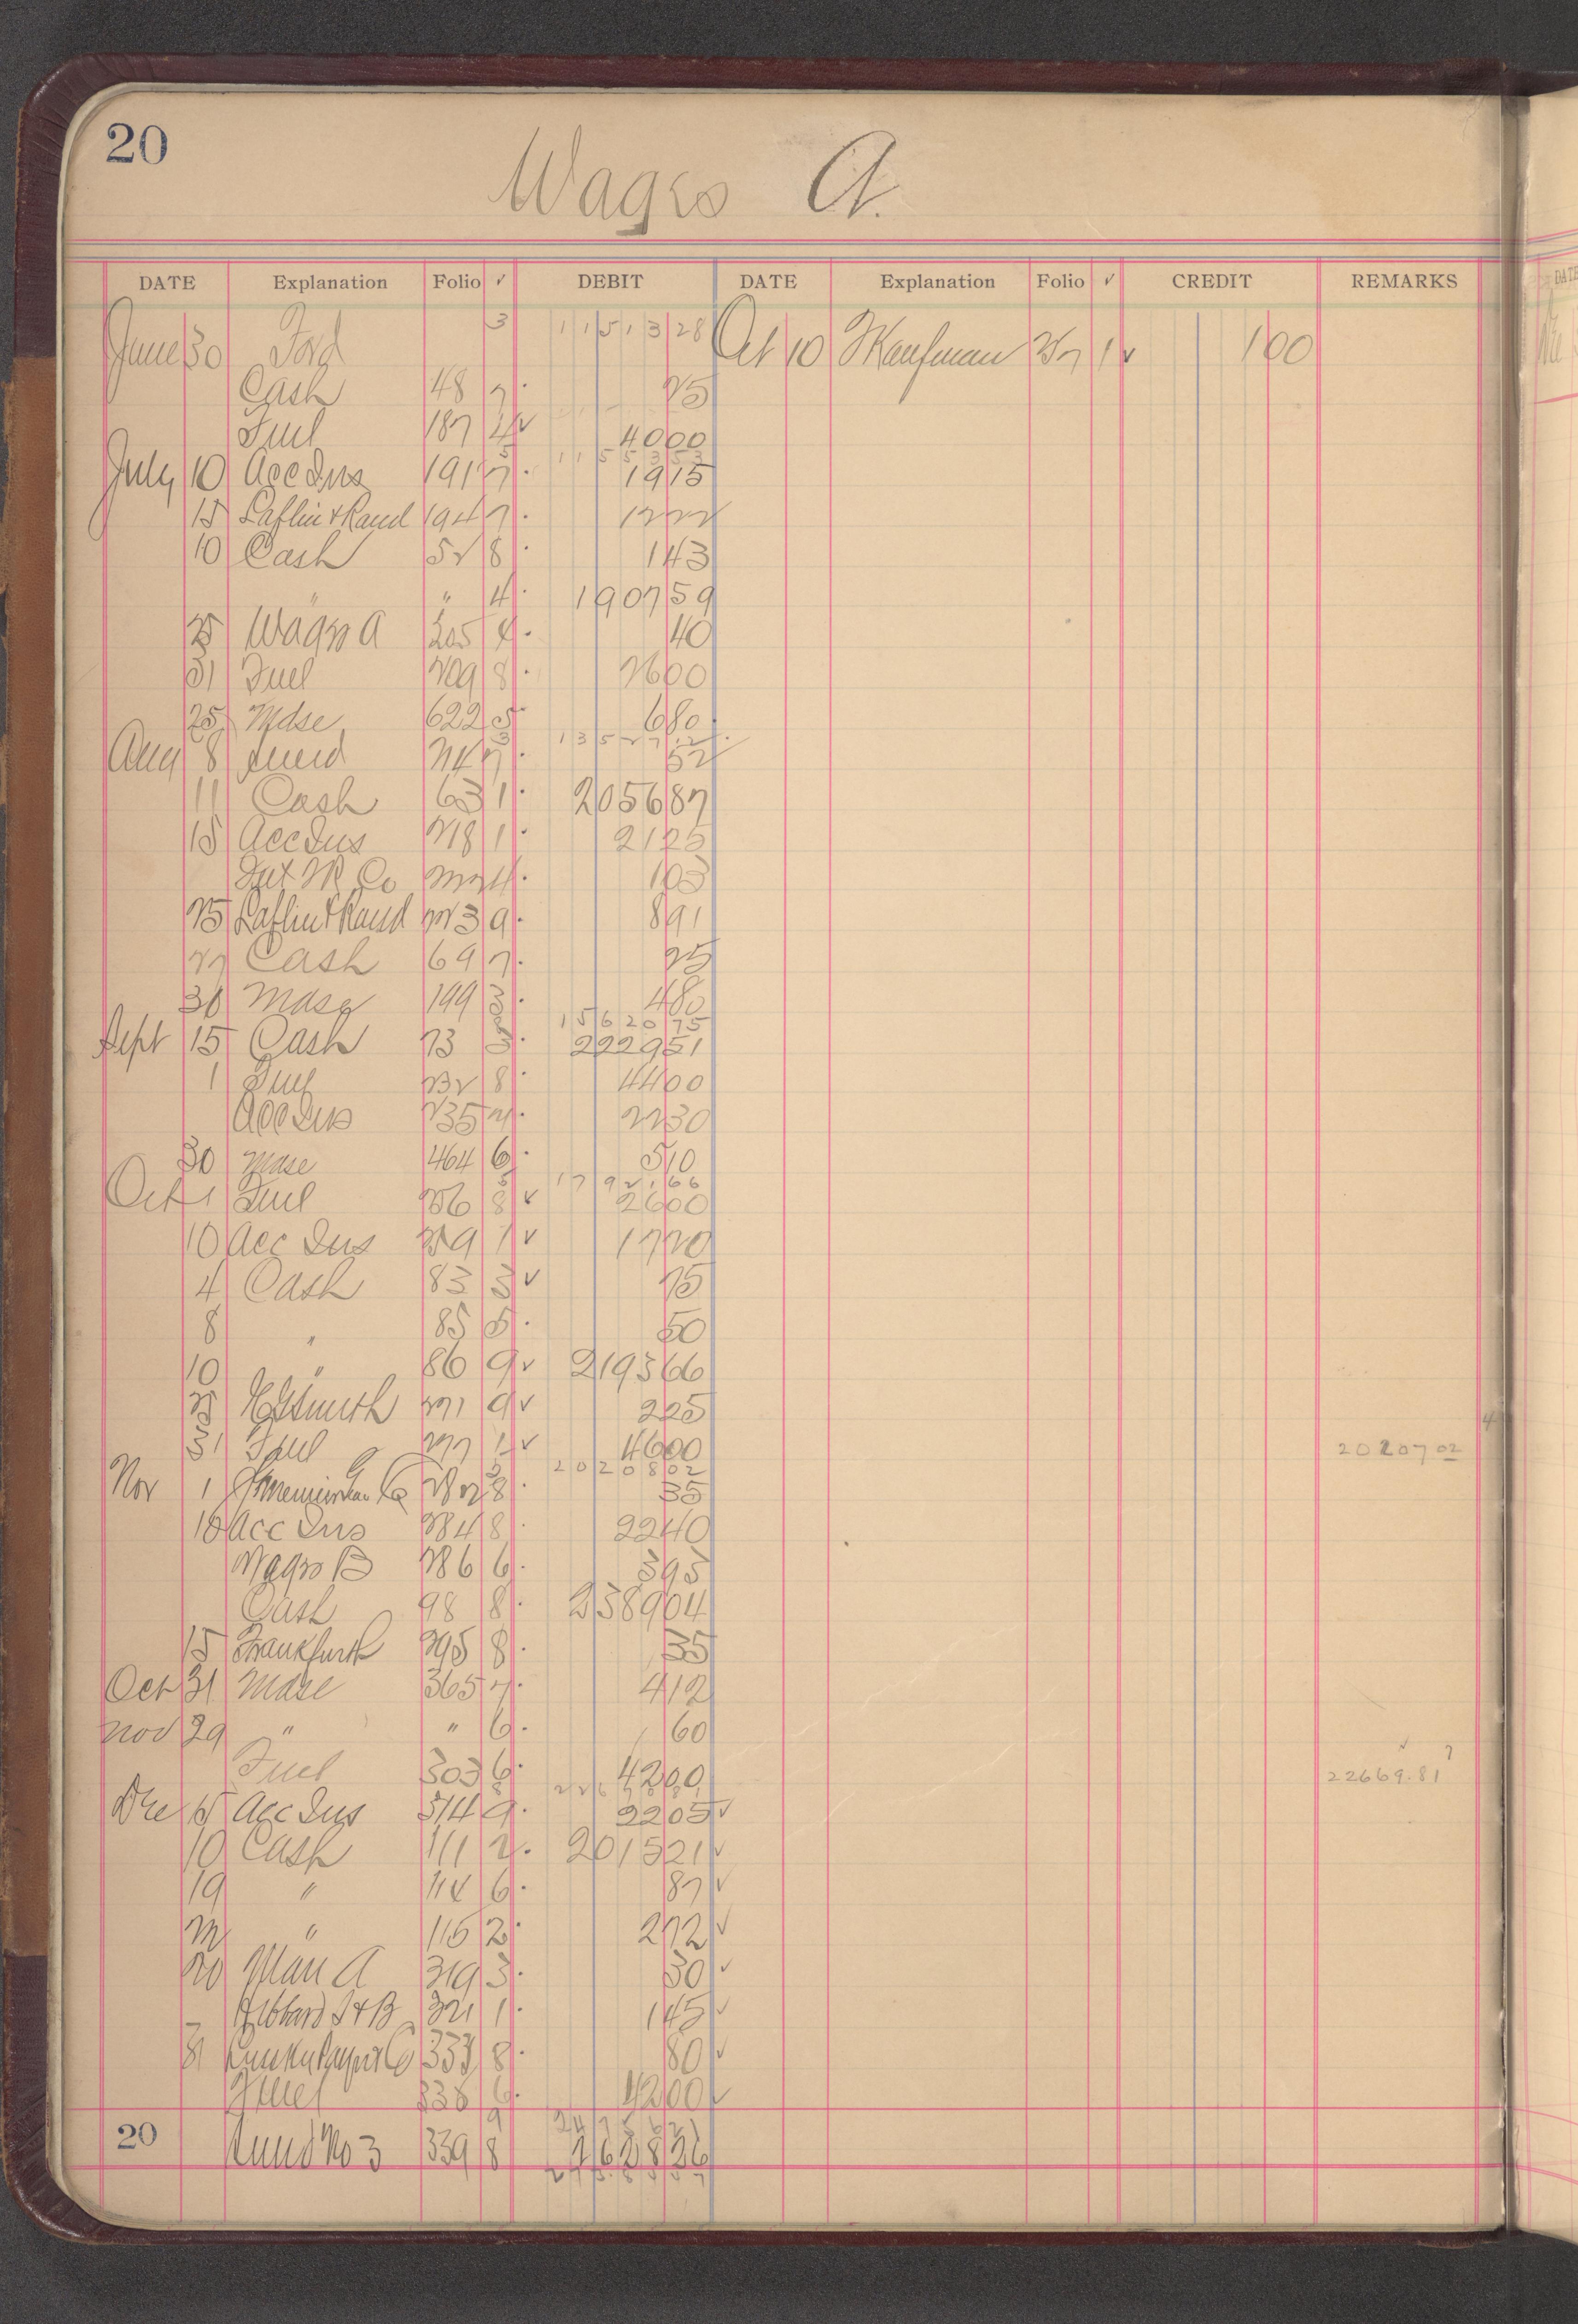 20
Wages A.
DATE Explanation Folio ✓ DEBIT DATE Explanation Folio ✓ CREDIT REMARKS
June 30 Ford 3 11513 28 Oct 10 Kaufman 1 ✓ 1 00
Cash 48 25
Fuel 187 4 ✓ 40 00
July 10 Acc Ins 191 7 19 15
15 Laflin & Rand 194 7
10 Cash 52 8 1 43
" " 4 1907 59
25 Wages A 205 4 40
31 Fuel 209 8 26 00
25 Mdse 622 5 6 80
Aug 8 7 52
11 Cash 63 1 2056 87
15 Acc Ins 218 1 21 25
Co 4 1 03
25 Laflin & Rand 223 9 8 91
27 Cash 69 7 25
30 Mdse 199 3 4 80
15620 75
Sept 15 Cash 73 2229 51
1 Fuel 232 8 44 00
Acc Ins 235 22 30
30 Mdse 464 6 5 10
17921 66
Oct 1 Fuel 256 8 ✓ 26 00
10 Acc Ins 259 1 ✓ 17 20
4 Cash 83 3 ✓ 75
8 " 85 5 50
10 " 86 9 ✓ 2193 66
25 271 9 ✓ 2 25
31 Fuel 277 1 ✓ 46 00
20207 02
20208 02
Nov 1 Co 8 35
10 Acc Ins 284 8 22 40
Wages B 286 6 3 95
Cash 98 8 2389 04
15 Frankfurth 295 8 35
Oct 31 Mdse 365 7 4 12
Nov 29 " " 6 60
Fuel 303 6 42 00
22669.81
Dec 15 Acc Ins 314 9 22 05 ✓
10 Cash 111 2 2015 21 ✓
19 " 114 6 87 ✓
" 116 2 2 72 ✓
20 A 319 3 30 ✓
Hibbard S & B 321 1 1 45 ✓
31 Co 333 8 80 ✓
Fuel 338 6 42 00 ✓
20 No 3 339 8